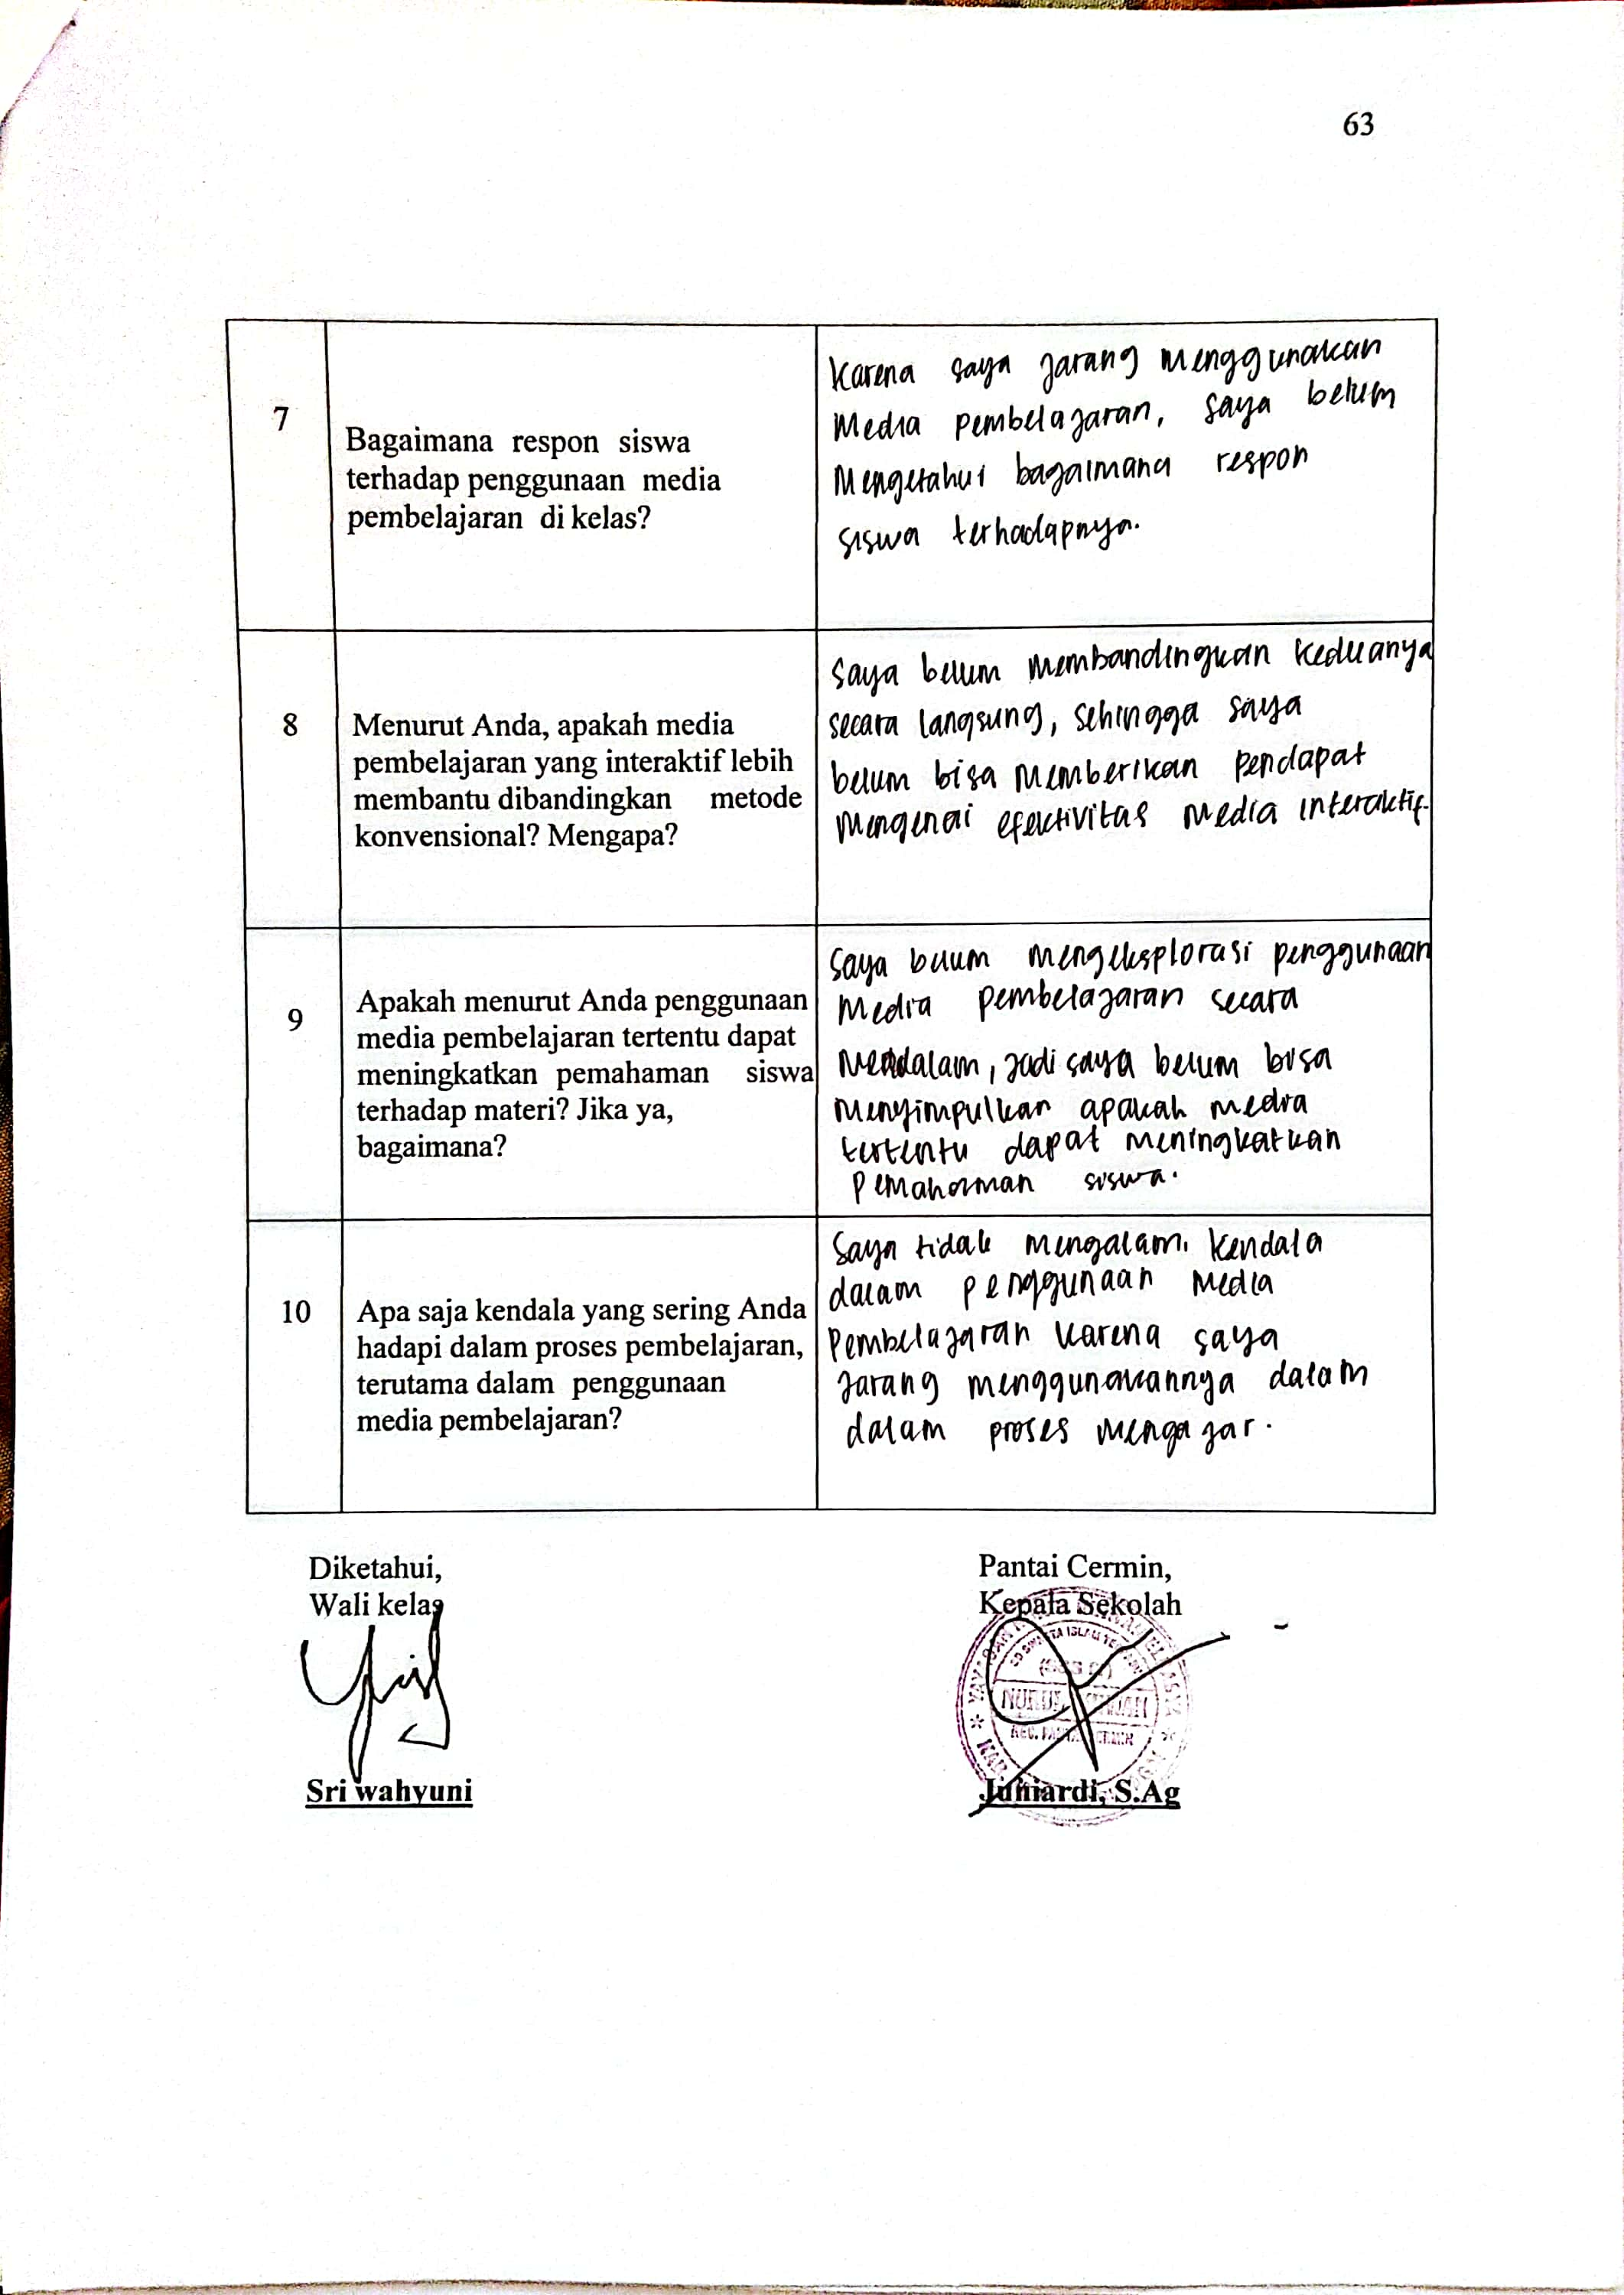 63
7
Bagaimana respon siswa
terhadap penggunaan media
pembelajaran di kelas?
Karena saya jarang menggunakan
Media pembelajaran, saya belum
Mengetahui bagaimana respon
siswa terhadapnya.
8
Menurut Anda, apakah media
pembelajaran yang interaktif lebih
membantu dibandingkan metode
konvensional? Mengapa?
Saya belum membandingkan keduanya
secara langsung, sehingga saya
belum bisa memberikan pendapat
Mengenai efektivitas media interaktif.
9
Apakah menurut Anda penggunaan
media pembelajaran tertentu dapat
meningkatkan pemahaman siswa
terhadap materi? Jika ya,
bagaimana?
Saya belum mengeksplorasi penggunaan
Media pembelajaran secara
Mendalam, jadi saya belum bisa
Menyimpulkan apakah media
tertentu dapat meningkatkan
Pemahaman siswa.
10
Apa saja kendala yang sering Anda
hadapi dalam proses pembelajaran,
terutama dalam penggunaan
media pembelajaran?
Saya tidak mengalami kendala
dalam penggunaan Media
Pembelajaran karena saya
jarang menggunakannya dalam
dalam proses mengajar.
Diketahui,
Wali kelas
Sri wahyuni
Pantai Cermin,
Kepala Sekolah
Juniardi, S.Ag